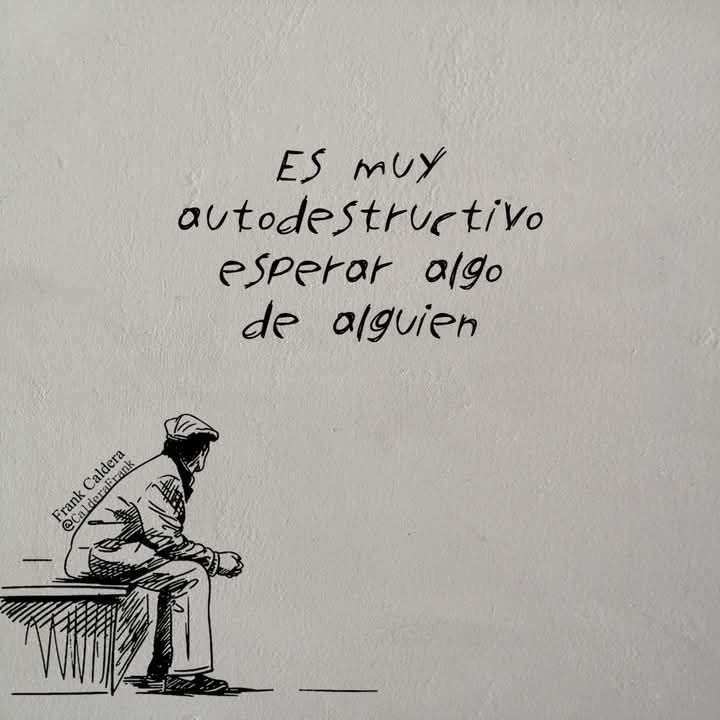 Es muy
autodestructivo
esperar algo
de alguien
Frank Caldera
@CalderaFrank